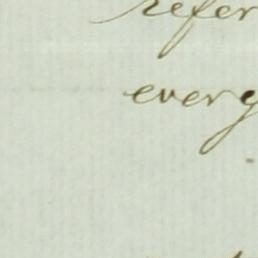 refer
every